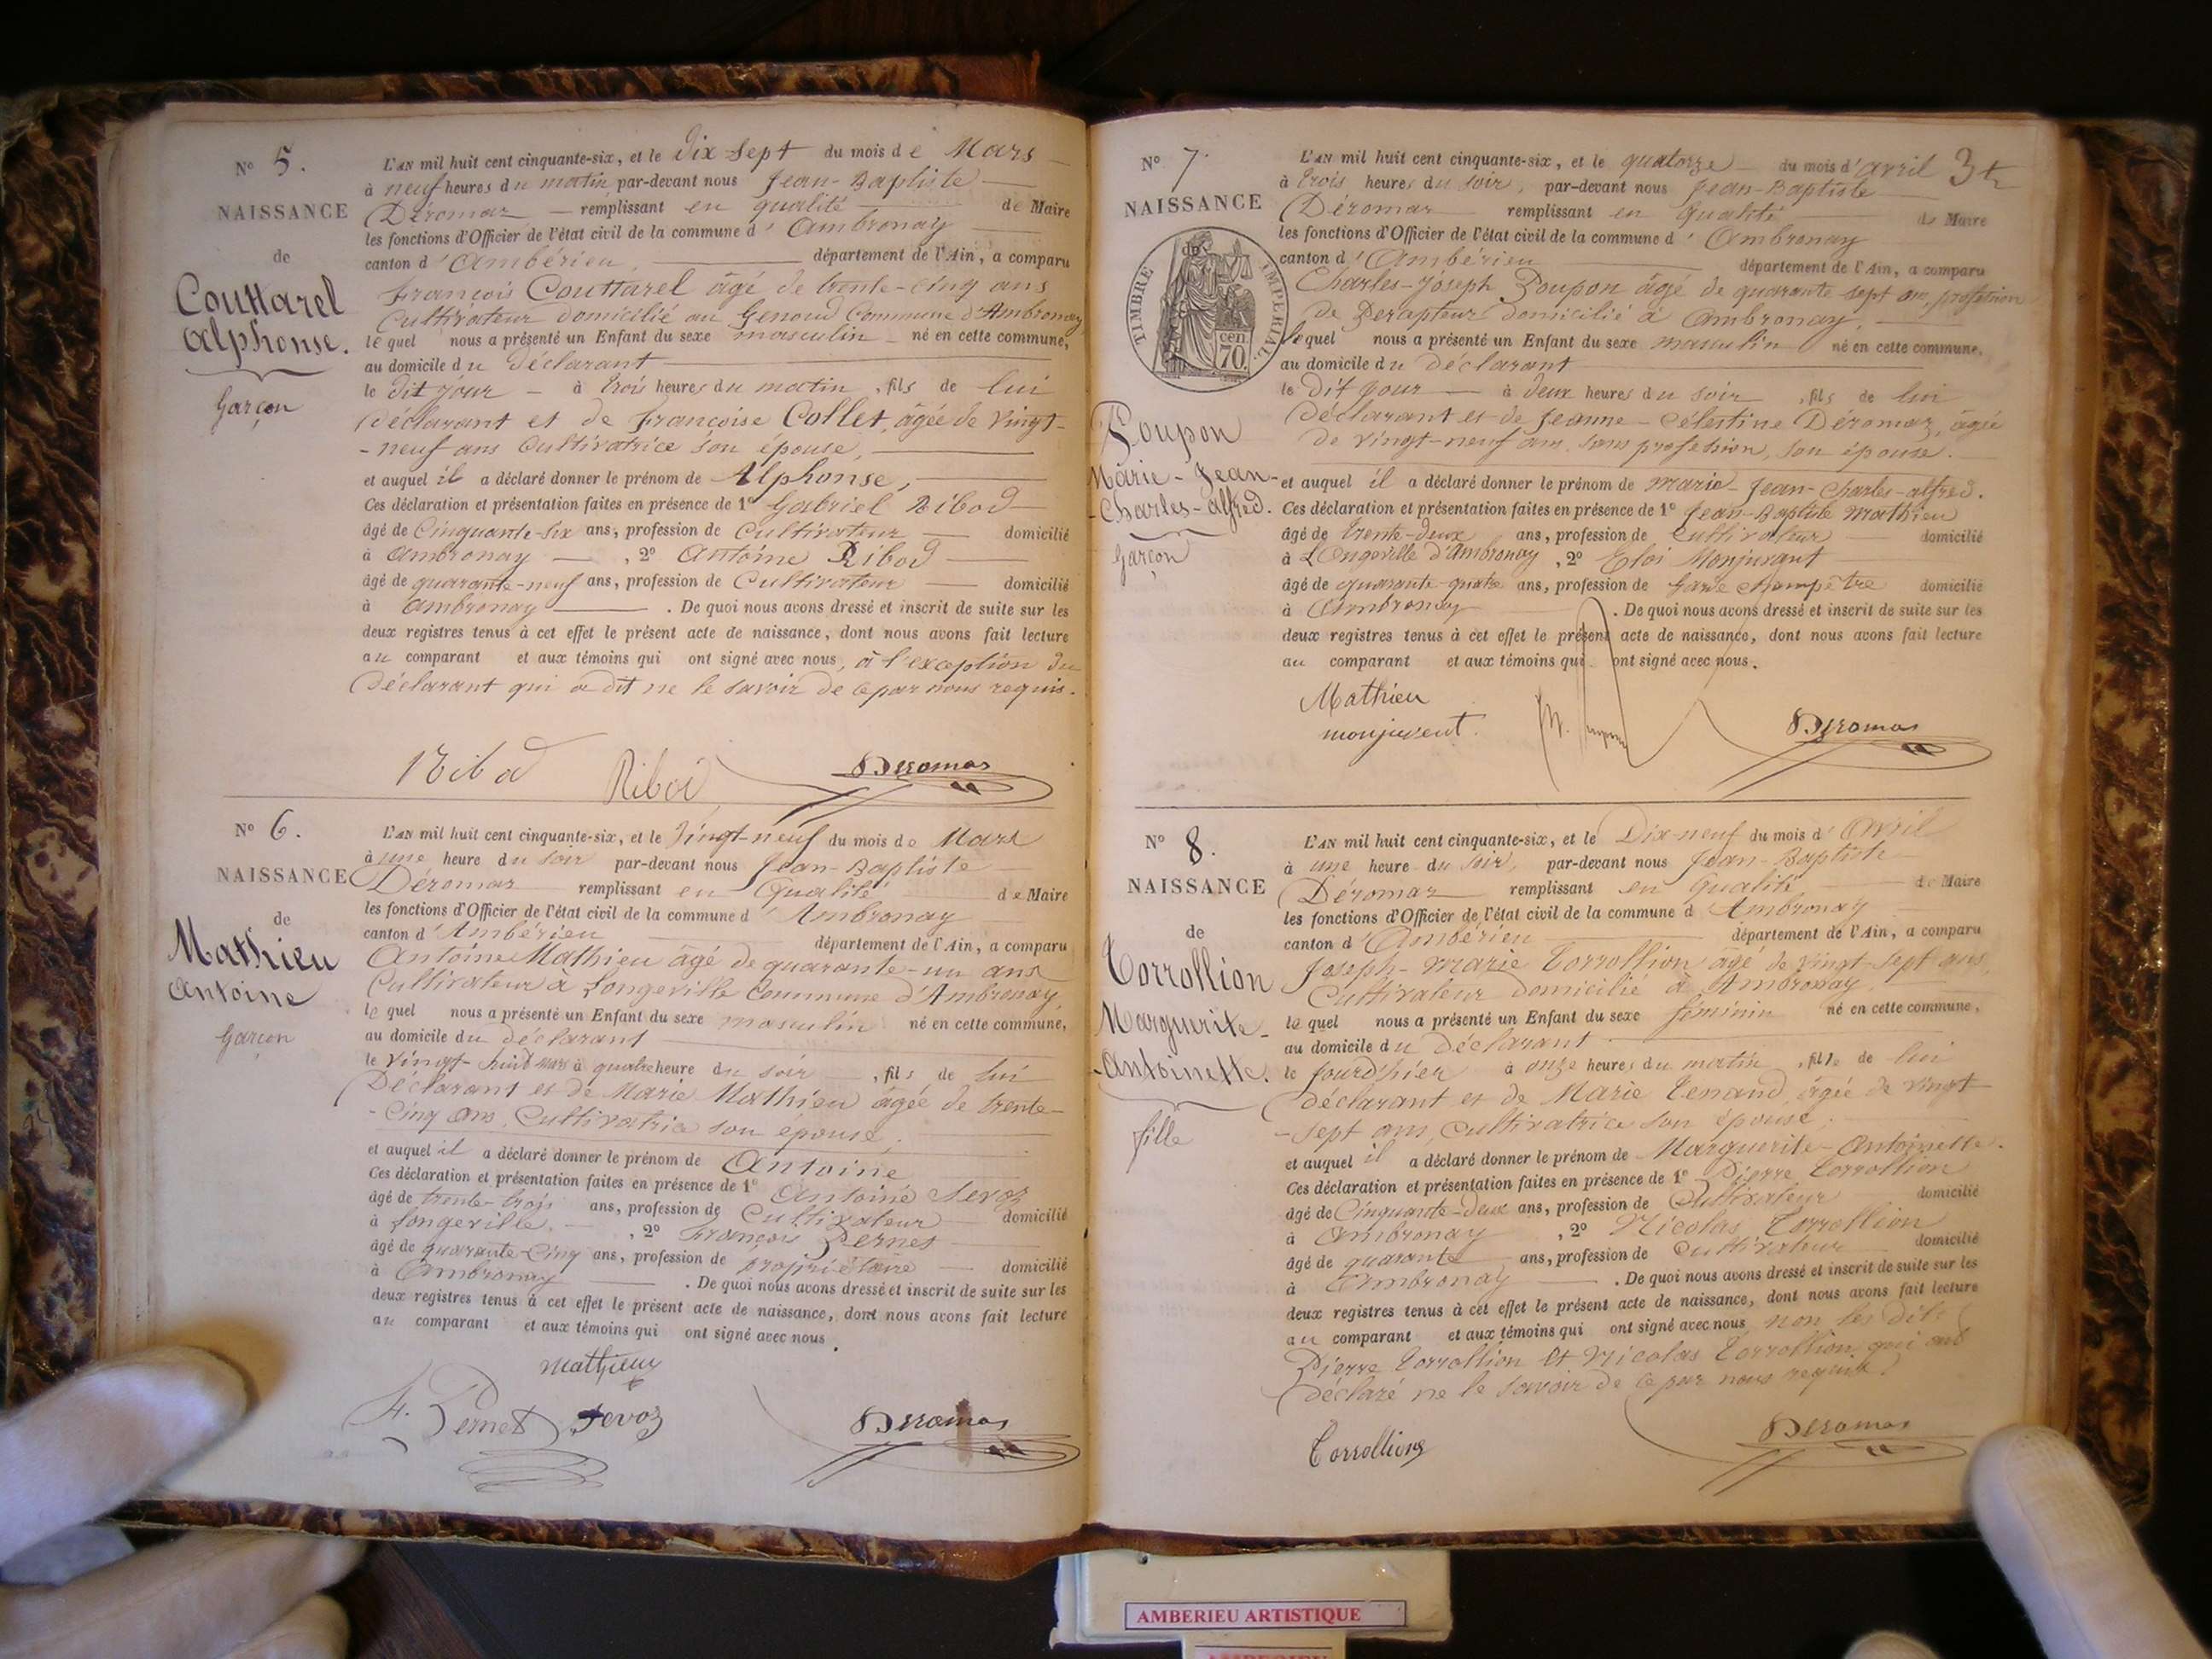 N° 5.
NAISSANCE
de
Couttarel
Alphonse.
Garçon
L'AN mil huit cent cinquante-six, et le Dix sept du mois de Mars
à neuf heures du matin par-devant nous Jean-Baptiste
Déromas remplissant en qualité de Maire
les fonctions d'Officier de l'état civil de la commune d'Ambronay
canton d'Ambérieu, département de l'Ain, a comparu
François Couttarel âgé de trente-cinq ans
Cultivateur domicilié au Genoud Commune d'Ambronay
lequel nous a présenté un Enfant du sexe masculin né en cette commune,
au domicile du Déclarant
le dit jour à trois heures du matin, fils de lui
Déclarant et de Françoise Collet, âgée de Vingt-
-neuf ans Cultivatrice son épouse,
et auquel il a déclaré donner le prénom de Alphonse,
Ces déclaration et présentation faites en présence de 1° Gabriel Ribod
âgé de Cinquante-six ans, profession de Cultivateur domicilié
à Ambronay, 2° Antoine Ribod
âgé de quarante-neuf ans, profession de Cultivateur domicilié
à Ambronay. De quoi nous avons dressé et inscrit de suite sur les
deux registres tenus à cet effet le présent acte de naissance, dont nous avons fait lecture
au comparant et aux témoins qui ont signé avec nous, à l'exception du
Déclarant qui a dit ne le savoir de ce par nous requis.
Ribod Ribod Deromas
N° 6.
NAISSANCE
de
Mathieu
Antoine
Garçon
L'AN mil huit cent cinquante-six, et le Vingt-neuf du mois de Mars
à une heure du soir par-devant nous Jean-Baptiste
Déromas remplissant en Qualité de Maire
les fonctions d'Officier de l'état civil de la commune d'Ambronay
canton d'Ambérieu département de l'Ain, a comparu
Antoine Mathieu âgé de quarante-un ans
Cultivateur à Longeville Commune d'Ambronay
lequel nous a présenté un Enfant du sexe masculin né en cette commune,
au domicile du déclarant
le vingt-huit mars à quatre heure du soir, fils de lui
Déclarant et de Marie Mathieu âgée de trente-
-Cinq ans, Cultivatrice son épouse,
et auquel il a déclaré donner le prénom de Antoine
Ces déclaration et présentation faites en présence de 1° Antoine Sevoz
âgé de trente-trois ans, profession de Cultivateur domicilié
à Longeville, 2° François Pernet
âgé de quarante-Cinq ans, profession de propriétaire domicilié
à Ambronay. De quoi nous avons dressé et inscrit de suite sur les
deux registres tenus à cet effet le présent acte de naissance, dont nous avons fait lecture
au comparant et aux témoins qui ont signé avec nous.
Mathieu
F. Pernet Sevoz Deromas
N° 7.
NAISSANCE
TIMBRE IMPERIAL
70 cen
Poupon
Marie-Jean-
-Charles-Alfred.
Garçon
L'AN mil huit cent cinquante-six, et le quatorze du mois d'avril
à trois heures du soir, par-devant nous Jean-Baptiste
Déromas remplissant en Qualité de Maire
les fonctions d'Officier de l'état civil de la commune d'Ambronay
canton d'Ambérieu département de l'Ain, a comparu
Charles-Joseph Poupon âgé de quarante sept ans, profession
de Percepteur domicilié à Ambronay,
lequel nous a présenté un Enfant du sexe masculin né en cette commune,
au domicile du Déclarant
le Dit jour à Deux heures du soir, fils de lui
Déclarant et de Jeanne-Célestine Déromas, âgée
de Vingt-neuf ans, sans profession, son épouse.
et auquel il a déclaré donner le prénom de Marie-Jean-Charles-alfred.
Ces déclaration et présentation faites en présence de 1° Jean-Baptiste Mathieu
âgé de trente-deux ans, profession de Cultivateur domicilié
à Longeville d'Ambronay, 2° Eloi Monjuvent
âgé de quarante-quatre ans, profession de Garde champêtre domicilié
à Ambronay. De quoi nous avons dressé et inscrit de suite sur les
deux registres tenus à cet effet le présent acte de naissance, dont nous avons fait lecture
au comparant et aux témoins qui ont signé avec nous.
Mathieu
monjuvent. Deromas
N° 8.
NAISSANCE
de
Torrollion
Marguerite-
-Antoinette.
fille
L'AN mil huit cent cinquante-six, et le Dix-neuf du mois d'Avril
à une heure du soir, par-devant nous Jean-Baptiste
Déromas remplissant en Qualité de Maire
les fonctions d'Officier de l'état civil de la commune d'Ambronay
canton d'Ambérieu département de l'Ain, a comparu
Joseph-Marie Torrollion âgé de vingt-sept ans,
Cultivateur domicilié à Ambronay
lequel nous a présenté un Enfant du sexe féminin né en cette commune,
au domicile du Déclarant
le jourd'hier à onze heures du matin, fille de lui
déclarant et de Marie Tenand, âgée de vingt-
-sept ans, Cultivatrice son épouse.
et auquel il a déclaré donner le prénom de Marguerite-Antoinette.
Ces déclaration et présentation faites en présence de 1° Pierre Torrollion
âgé de Cinquante-deux ans, profession de Cultivateur domicilié
à Ambronay, 2° Nicolas Torrollion
âgé de quarante ans, profession de Cultivateur domicilié
à Ambronay. De quoi nous avons dressé et inscrit de suite sur les
deux registres tenus à cet effet le présent acte de naissance, dont nous avons fait lecture
au comparant et aux témoins qui ont signé avec nous non les dits
Pierre Torrollion et Nicolas Torrollion qui ont
déclaré ne le savoir de ce par nous requis.
Torrollion Deromas
AMBERIEU ARTISTIQUE